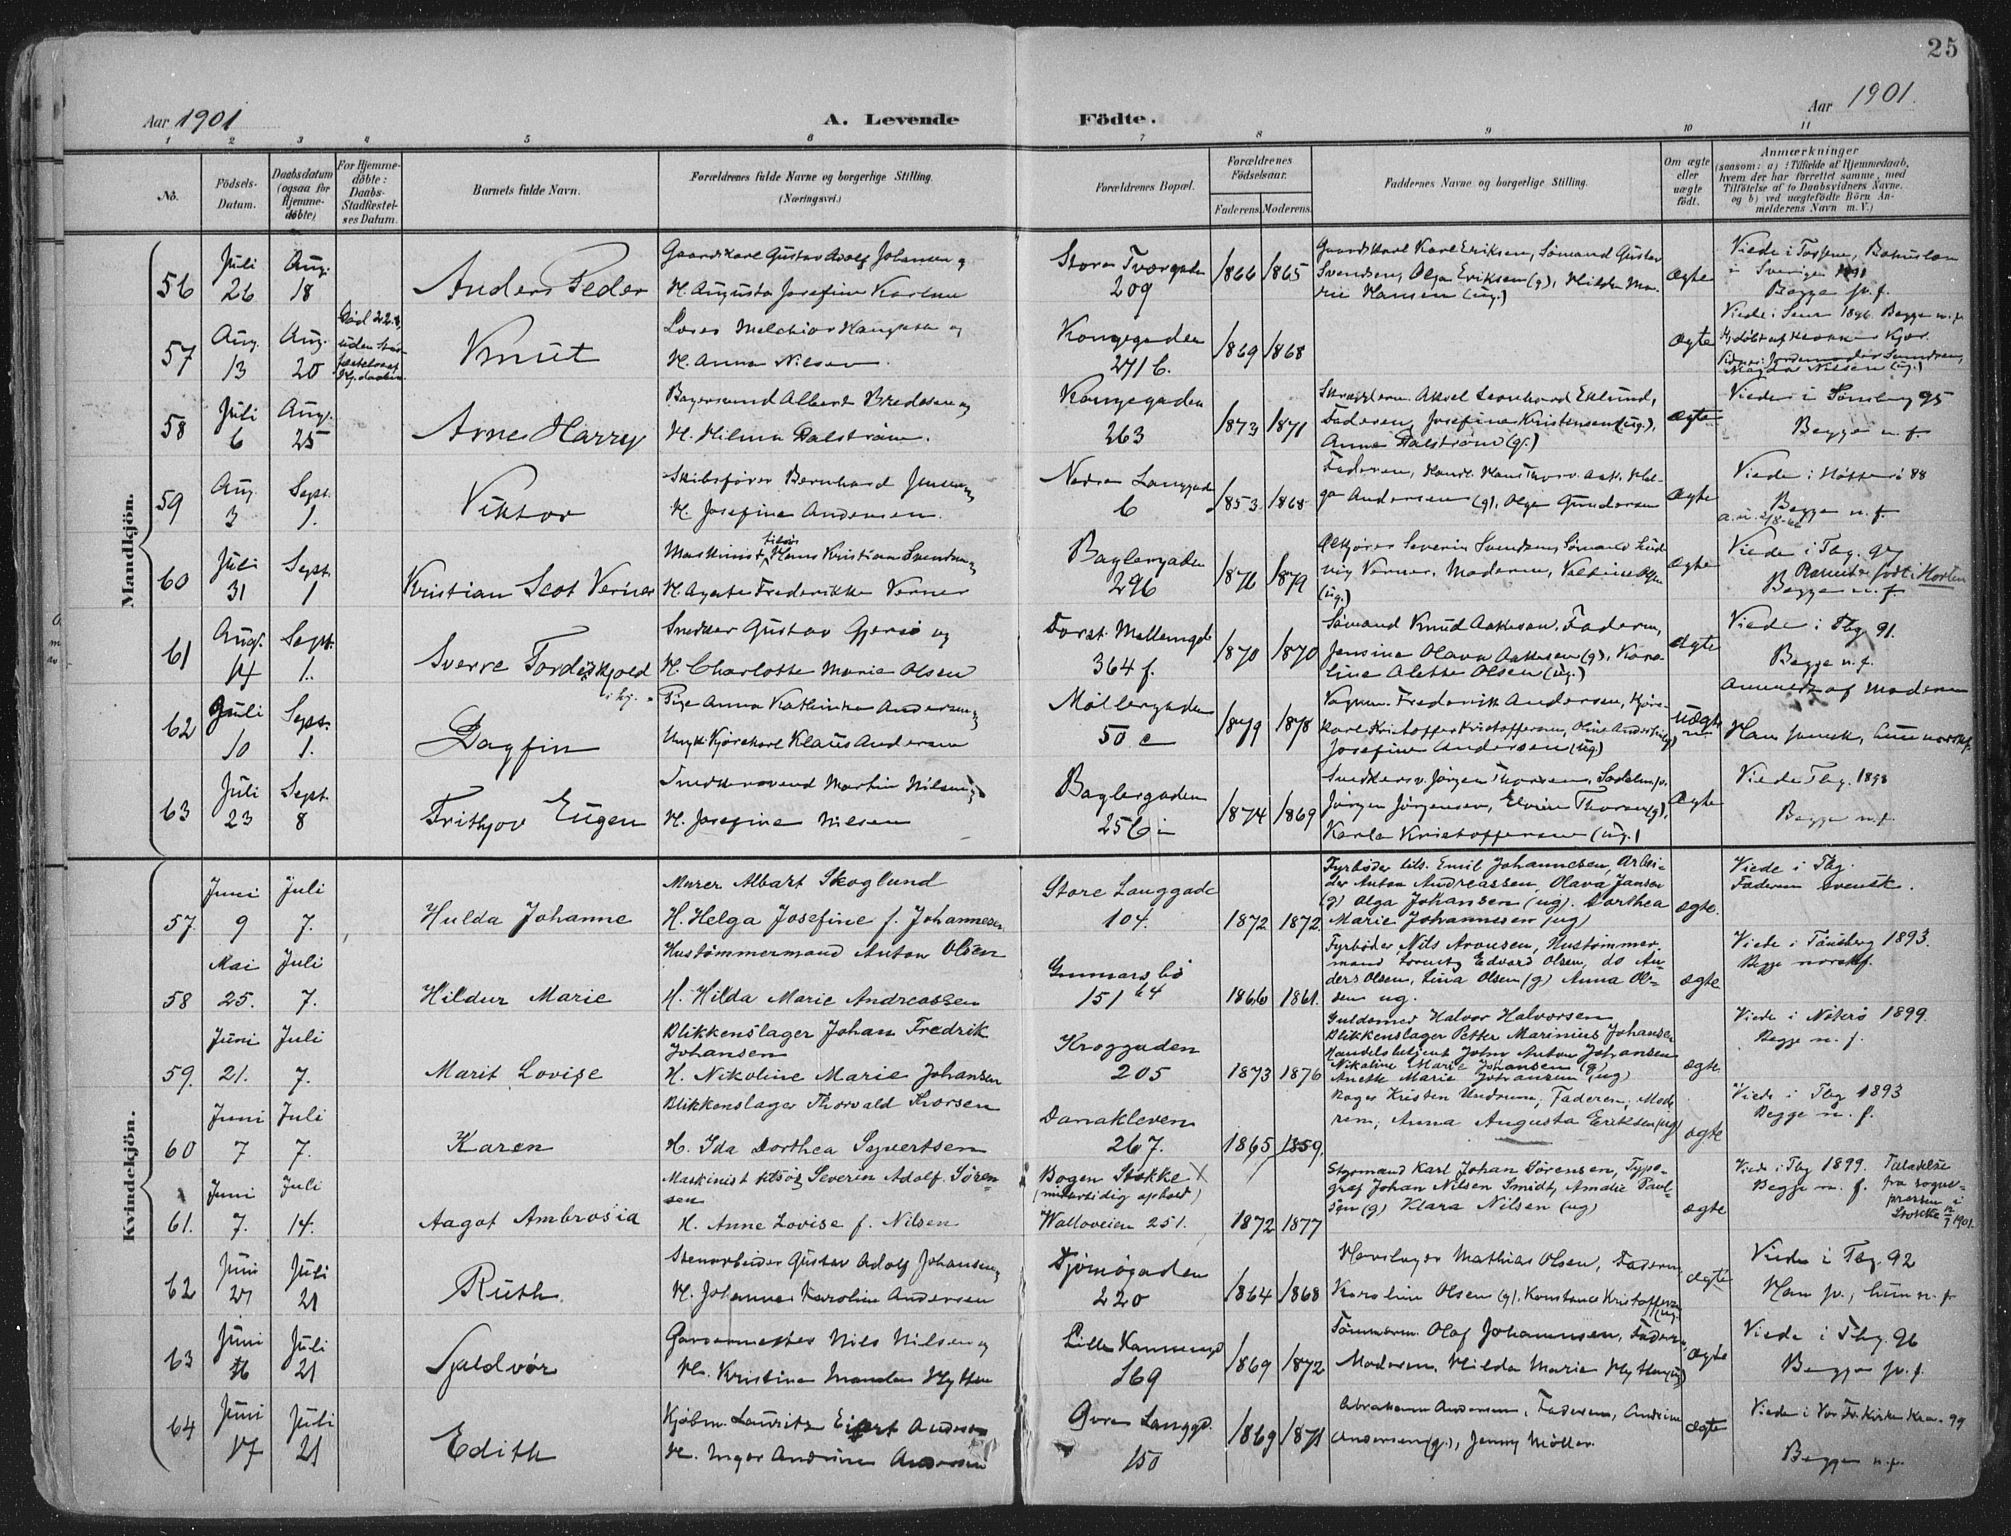 25
Aar 1901
A. Levende
Födte.
Aar 1901.
1 2 3 4 5 6 7 8 9 10 11
No.
Födsels-
Datum.
Daabsdatum
(ogsaa for
Hjemme-
döbte)
For Hjemme-
döbte:
Daabs-
Stadfestel-
ses Datum.
Barnets fulde Navn.
Forældrenes fulde Navne og borgerlige Stilling.
(Næringsvei.)
Forældrenes Bopæl.
Forældrenes
Födselsaar.
Faderens. Moderens.
Faddernes Navne og borgerlige Stilling.
Om ægte
eller
uægte
født.
Anmærkninger
(saasom: a) i Tilfælde af Hjemmedaab,
hvem der har forrettet samme, med
Tilföielse af to Daabsvidners Navne.
og b) ved uægtefödte Börn An-
melderens Navn m. V.)
Mandkjön.
56
Juli
26
Aug.
18
Anders Peder
Gaardskarl Gustav Adolf Johansen og
H. Augusta Josefine
Store Tværgaden
209
1866 1865
Gaardskarl Karl Eriksen, Sømand Gustav
Svendsen, Olga Eriksen (g), Hilda Ma-
rie Hansen (ug.)
ægte
Begge sv. f.
57
Aug.
13
Aug.
20
Knut
H. Anna Nilsen.
Kongegaden
271 b.
1869 1868
ægte
Viede i Sem 1896. Begge n. f.
Magda Nilsen (ug.)
58
Juli
6
Aug.
25
Arne Harry
Bagersvend Albert Bredesen og
H. Hilma Dalstrøm.
Kongegaden
263
1873 1871
Skræderm. Aksel Leonhard Eklund,
Faderen, Josefine Kristensen (ug.),
Anna Dalstrøm (g.)
ægte
Viede i Tønsberg 95
Begge n. f.
59
Aug.
3
Sept.
1.
Viktor
Skibsfører Bernhard Jensen og
H. Josefine Andersen.
Nedre Langgade
6
1853 1868
ga Andersen (g), Olga Gundersen
ægte
Viede i Nøtterø 88
Begge n. f.
60
Juli
31
Sept.
1
Kristian Scot Verner
Maskinist, Hans Kristian Svendsen og
H. Agathe Frederikke Verner
Baglergaden
296
1876 1879
Severin Svendsen, Sømand Lud-
vig Verner, Moderen,
(ug.)
ægte
Viede i Tbg. 97
Begge n. f.
61
Aug.
14
Sept.
1.
Sverre Tordenskjold
Snedker Gustav Gjersø og
H. Charlotte Marie Olsen
Forst. Mellemgd
364 f.
1870 1870
Sømand Knud Aakesen, Faderen,
Jensine Olava Aakesen (g), Karo-
line Alette Olsen (ug.)
ægte
Viede i Tbg 91.
Begge n. f.
62
Juli
10
Sept.
1.
Dagfin
Pige Anna Kathinka Andersen og
Ungk. Kjørekarl Klaus Andersen
Møllergaden
50 c
1879 1878
Vognm. Frederik Andersen, Kjøre-
karl Kristoffer Kristoffersen,
Josefine Andersen (ug.)
uægte
Anmeldt af Moderen
Han svensk, hun norsk f.
63
Juli
23
Sept.
8
Frithjov Eugen
Snedkersvend Martin Nilsen og
H. Josefine Nilsen
Baglergaden
256 i
1874 1869
Snedkersv. Jørgen Thorsen,
Jørgen Jørgensen, Thorsen (g),
Karla Kristoffersen (ug.)
ægte
Viede Tbg. 1898
Begge n. f.
Kvindekjön.
57.
Juni
9
Juli
7.
Hulda Johanne
Murer Albart Skoglund
H. Helga Josefine f. Johannesen.
Store Langgade
104.
1872 1872.
Fyrbøder tils. Emil Johannesen, Arbei-
der Anton Andreassen, Olava Jansen
(g) Olga Johansen (ug). Dorthea
Marie Johannesen (ug)
ægte.
Viede i Tbg.
Faderen svensk.
58
Mai
25.
Juli
7.
Hildur Marie
Hustømmermand Anton Olsen
H. Hilda Marie Andreassen
Gunnarsbø
151 64
1866 1861.
Fyrbøder Nils Aronsen, Hustømmer-
mand Lorentz Edvard Olsen, do An-
ders Olsen, Lina Olsen (g) Anna Ol-
sen ug.
ægte
Viede i Tønsberg 1893.
Begge norsk f.
59.
Juni
21.
Juli
7.
Marit Lovise
Blikkenslager Johan Fredrik
Johansen
H. Nikoline Marie Johansen
Kroggaden
205
1873 1876
Guldsmed Halvor Halvorsen
Blikkenslager Petter Marinius Johansen
Handelsbetjent John Anton Johansen
Nikoline Marie Johansen (g)
Anette Marie Johansen (ug)
ægte.
Viede i Nøterø 1899.
Begge n. f.
60
Juni
7
Juli
7.
Karen
Blikkenslager Thorvald Thorsen
H. Ida Dorthea Syvertsen
Danakleven
267.
1865 1859.
Bager Kristen Undrum, Faderen, Mode-
ren, Anna Augusta Eriksen (ug)
ægte
Viede i Tbg 1893
Begge n. f.
61.
Juni
7.
Juli
14.
Aagot Ambrosia
Maskinist tilsøs Severin Adolf Søren-
sen
H. Anne Lovise f. Nilsen
Bogen Stokke X
(midlertidig ophold)
Walløveien 251.
1872 1877
Styrmand Karl Johan Sørensen, Typo-
graf Johan Nilsen Smidt, Amalie Paul-
sen (g) Klara Nilsen (ug)
ægte
Viede i Tbg 1899. Tilladelse
Begge n. f. fra sogne-
presten i
Stokke 12/7 1901.
62
Juni
27
Juli
21
Ruth
Stenarbeider Gustav Adolf Johansen og
H. Johanne Karoline Andersen
Tjømøgaden
220
1864 1868
Mathias Olsen, Faderen
Karoline Olsen (g), Konstance Kristoffersen
(ug.)
ægte
Viede i Tbg. 92
Han sv., hun n. f.
63
Juni
16
Juli
21
Sjaldvør
Garvermester Nils Nilsen og
H. Kristine Hytten
Lille
169
1869 1872
Tømmerm. Olaf Johannesen, Faderen,
Moderen, Hilda Marie Hytten (ug)
ægte
Viede i Tbg. 96
Begge sv. f.
64
Juni
17
Juli
21
Edith
Kjøbm. Lauritz Andersen
H. Inger Andrine Andersen
Øvre Langgd.
150
1869 1871
Abraham Andersen, Faderen, Andrine
Andersen (g.), Jenny Møller.
ægte
Viede i Vor Fr. Kirke Kra. 99
Begge n. f.